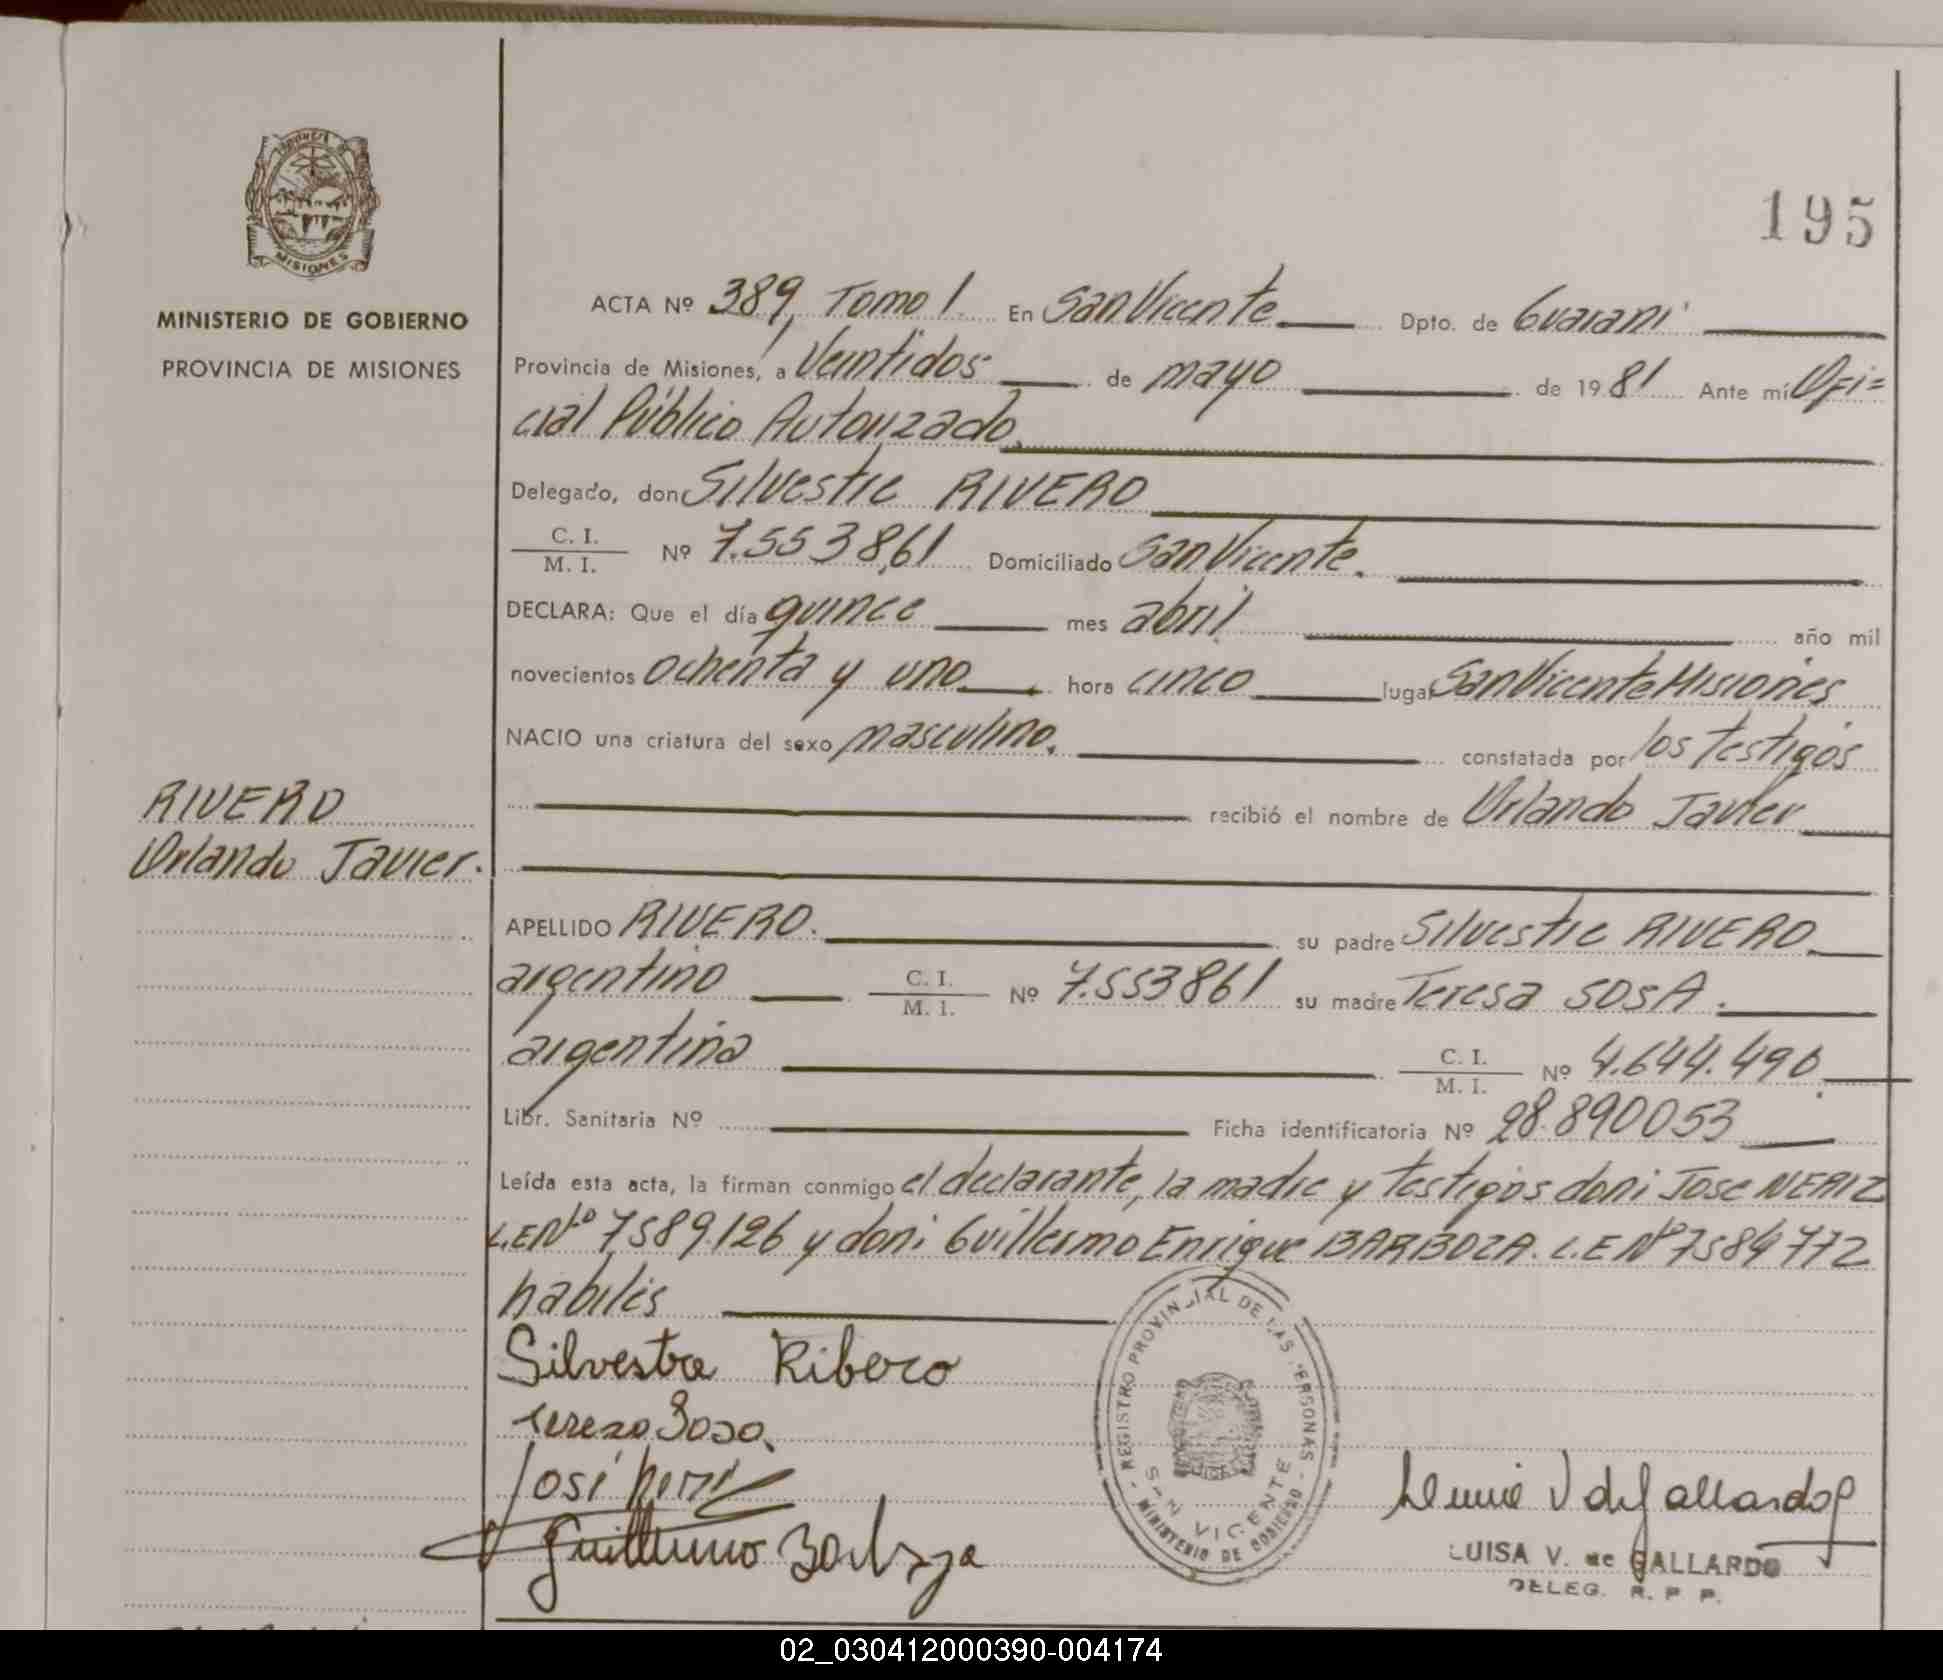 MISIONES
MINISTERIO DE GOBIERNO
PROVINCIA DE MISIONES
RIVERO
Orlando Javier.
195
ACTA Nº 389, Tomo I. En San Vicente Dpto. de Guarani
Provincia de Misiones, a Veintidos de mayo de 1981 Ante mí Ofi=
cial Público Autorizado.
Delegado, don Silvestre RIVERO
C. I. / M. I. Nº 7.553.861 Domiciliado San Vicente.
DECLARA: Que el día quince mes abril año mil
novecientos ochenta y uno hora cinco lugar San Vicente Misiones
NACIO una criatura del sexo masculino. constatada por los testigos
recibió el nombre de Orlando Javier
APELLIDO RIVERO. su padre Silvestre RIVERO
argentino C. I. / M. I. Nº 7.553861 su madre Teresa SOSA.
argentina C. I. / M. I. Nº 4.644.490
Libr. Sanitaria Nº Ficha identificatoria Nº 28.890053
Leída esta acta, la firman conmigo el declarante, la madre y testigos don: Jose NERIZ
L.E Nº 7589.126 y don: Guillermo Enrique BARBOZA. L.E Nº 7584772
habiles
Silvestre Ribero
Tereza Sosa.
José Neriz
Guillermo Barboza
REGISTRO PROVINCIAL DE LAS PERSONAS - MINISTERIO DE GOBIERNO -
SAN VICENTE
LUISA V. de GALLARDO
DELEG. R. P. P.
02_030412000390-004174